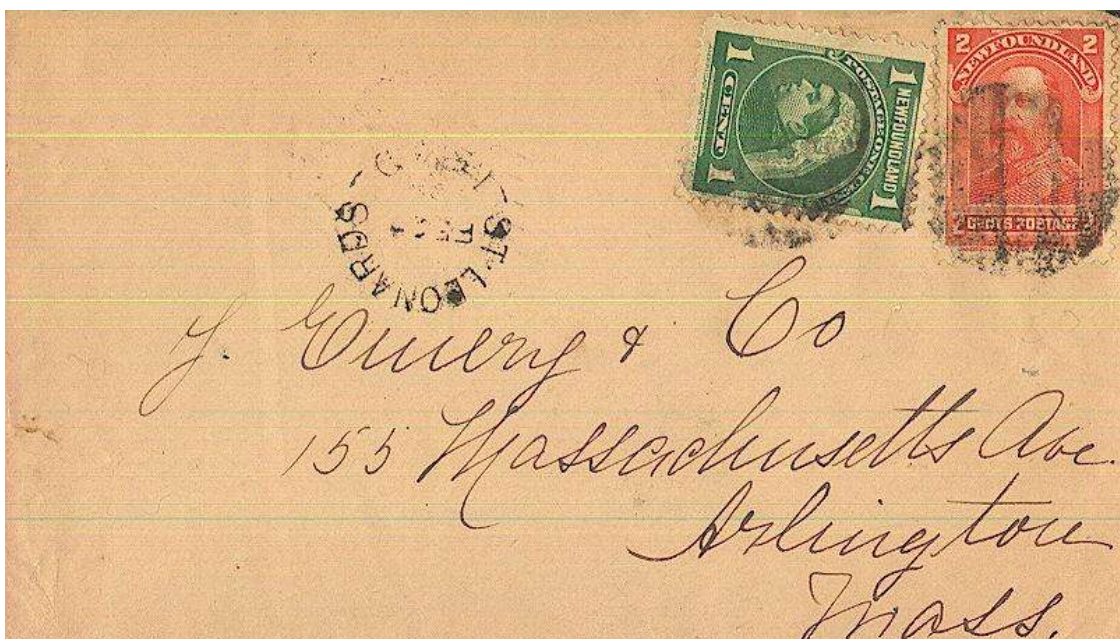 1 NEWFOUNDLAND 1
POSTAGE ONE CENT
1 CENT 1
2 2
NEWFOUNDLAND
2 CENTS POSTAGE 2
ST LEONARDS
J. Emery & Co
155 Massachusetts Ave.
Arlington
Mass.